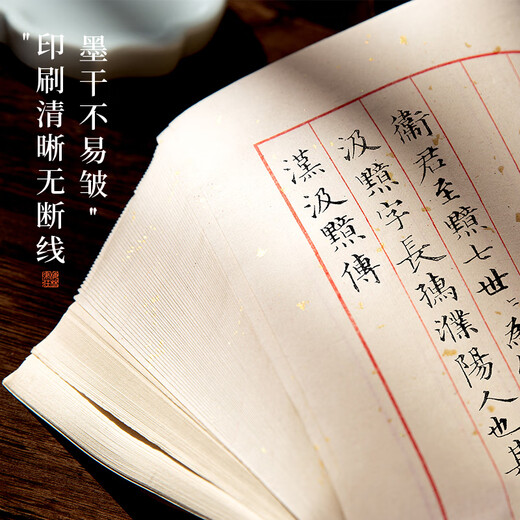 "印刷清晰无断线
墨干不易皱"
漢汲黯傳
汲黯字長孺濮陽人也其
衛君至黯七世〻為